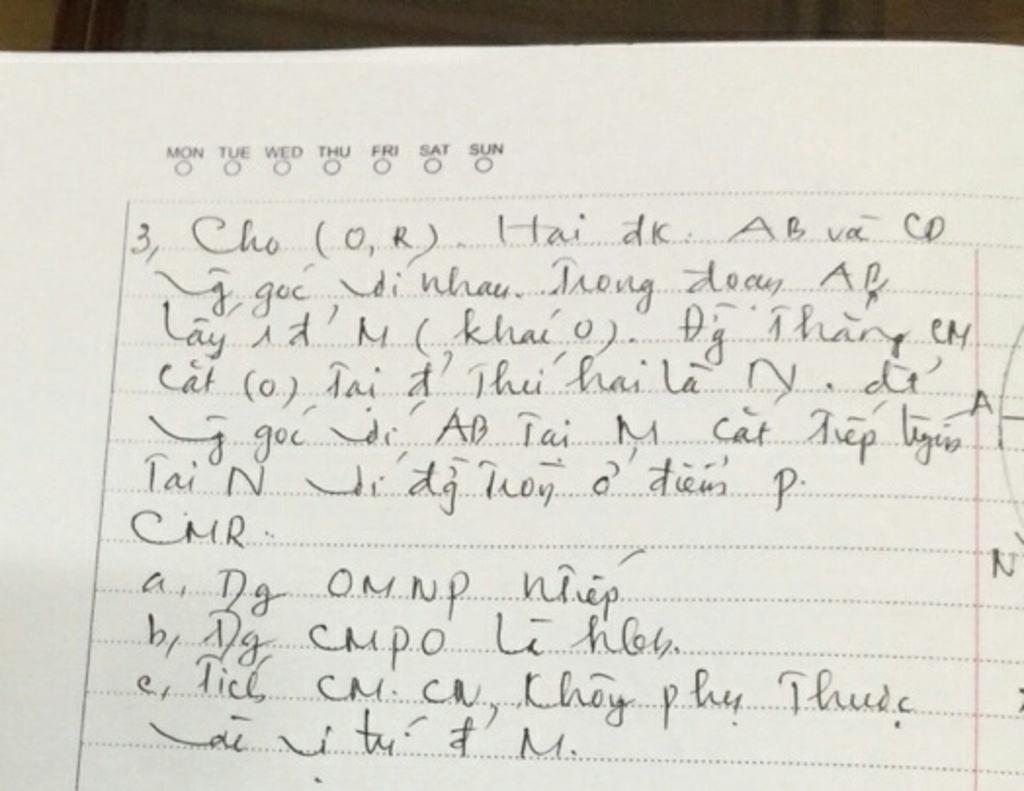 MON TUE WED THU FRI SAT SUN
3, Cho (O, R). Hai đk. AB và CD
vg góc với nhau. Trong đoạn AB
lấy 1 đ' M (khác O). Đg Thẳng CM
cắt (O) Tại đ' Thứ hai là N. đt'
A
vg góc với AB Tại M cắt Tiếp tuyến
Tại N với đg Tròn ở điểm P.
CMR.
N
a, Tg OMNP nTiếp
b, Tg CMPO là hbh.
c, Tích CM. CN, Không phụ Thuộc
vào vị trí đ' M.